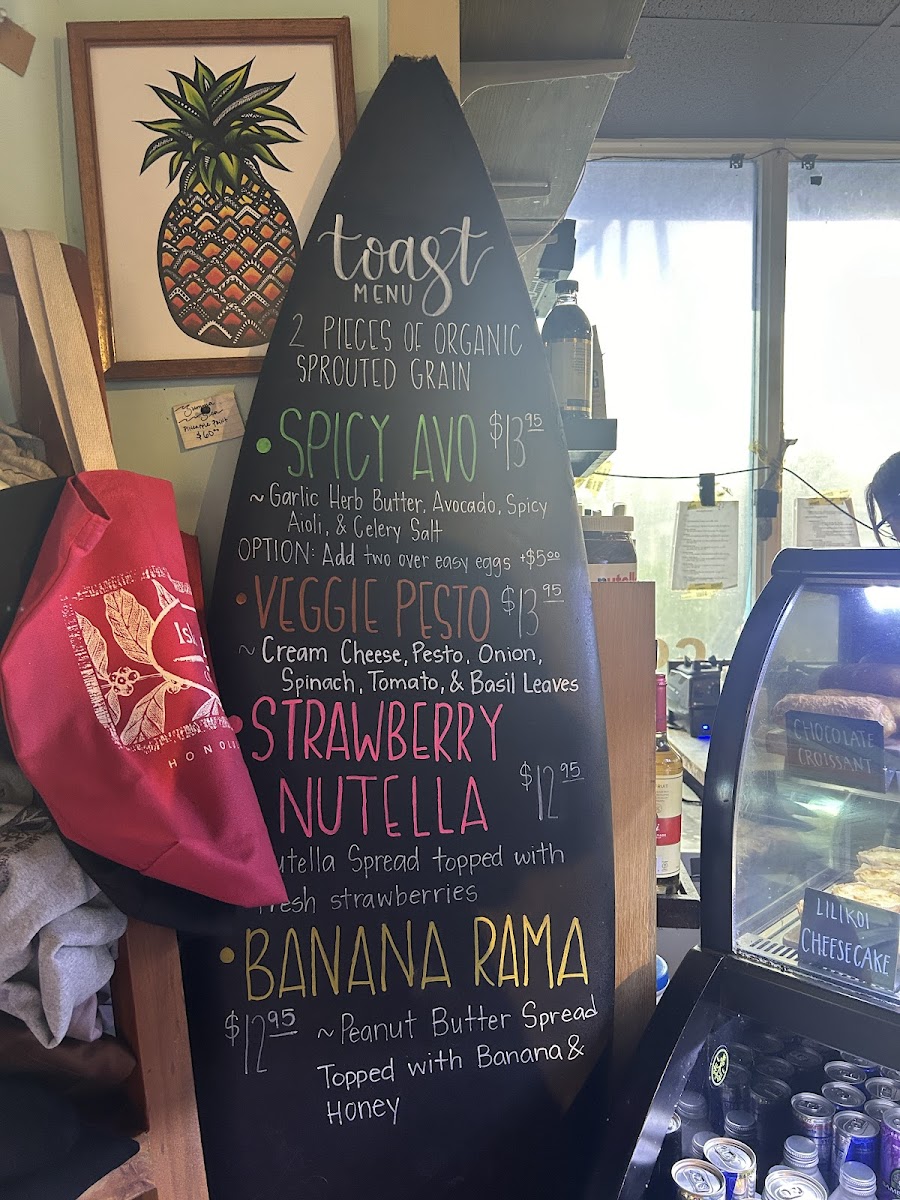 toast
MENU
2 PIECES OF ORGANIC
SPROUTED GRAIN
• SPICY AVO $13.95
~ Garlic Herb Butter, Avocado, Spicy
Aioli, & Celery Salt
OPTION: Add two over easy eggs +$5.00
• VEGGIE PESTO $13.95
~ Cream Cheese, Pesto, Onion,
Spinach, Tomato, & Basil Leaves
• STRAWBERRY
NUTELLA $12.95
utella Spread topped with
fresh strawberries
• BANANA RAMA
$12.95 ~ Peanut Butter Spread
Topped with Banana &
Honey
Pineapple Print
$60.00
Isl
HONOLU
CHOCOLATE
CROISSANT
LILIKOI
CHEESECAKE